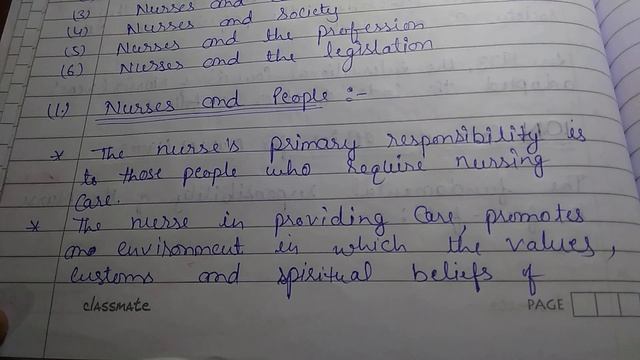 (3) Nurses and
(4) Nurses and society
(5) Nurses and the profession
(6) Nurses and the legislation
(1.) Nurses and People :-
* The nurse's primary responsibility is
to those people who require nursing
care.
* The nurse in providing care, promotes
an environment in which the values,
customs and spiritual beliefs of
classmate
PAGE